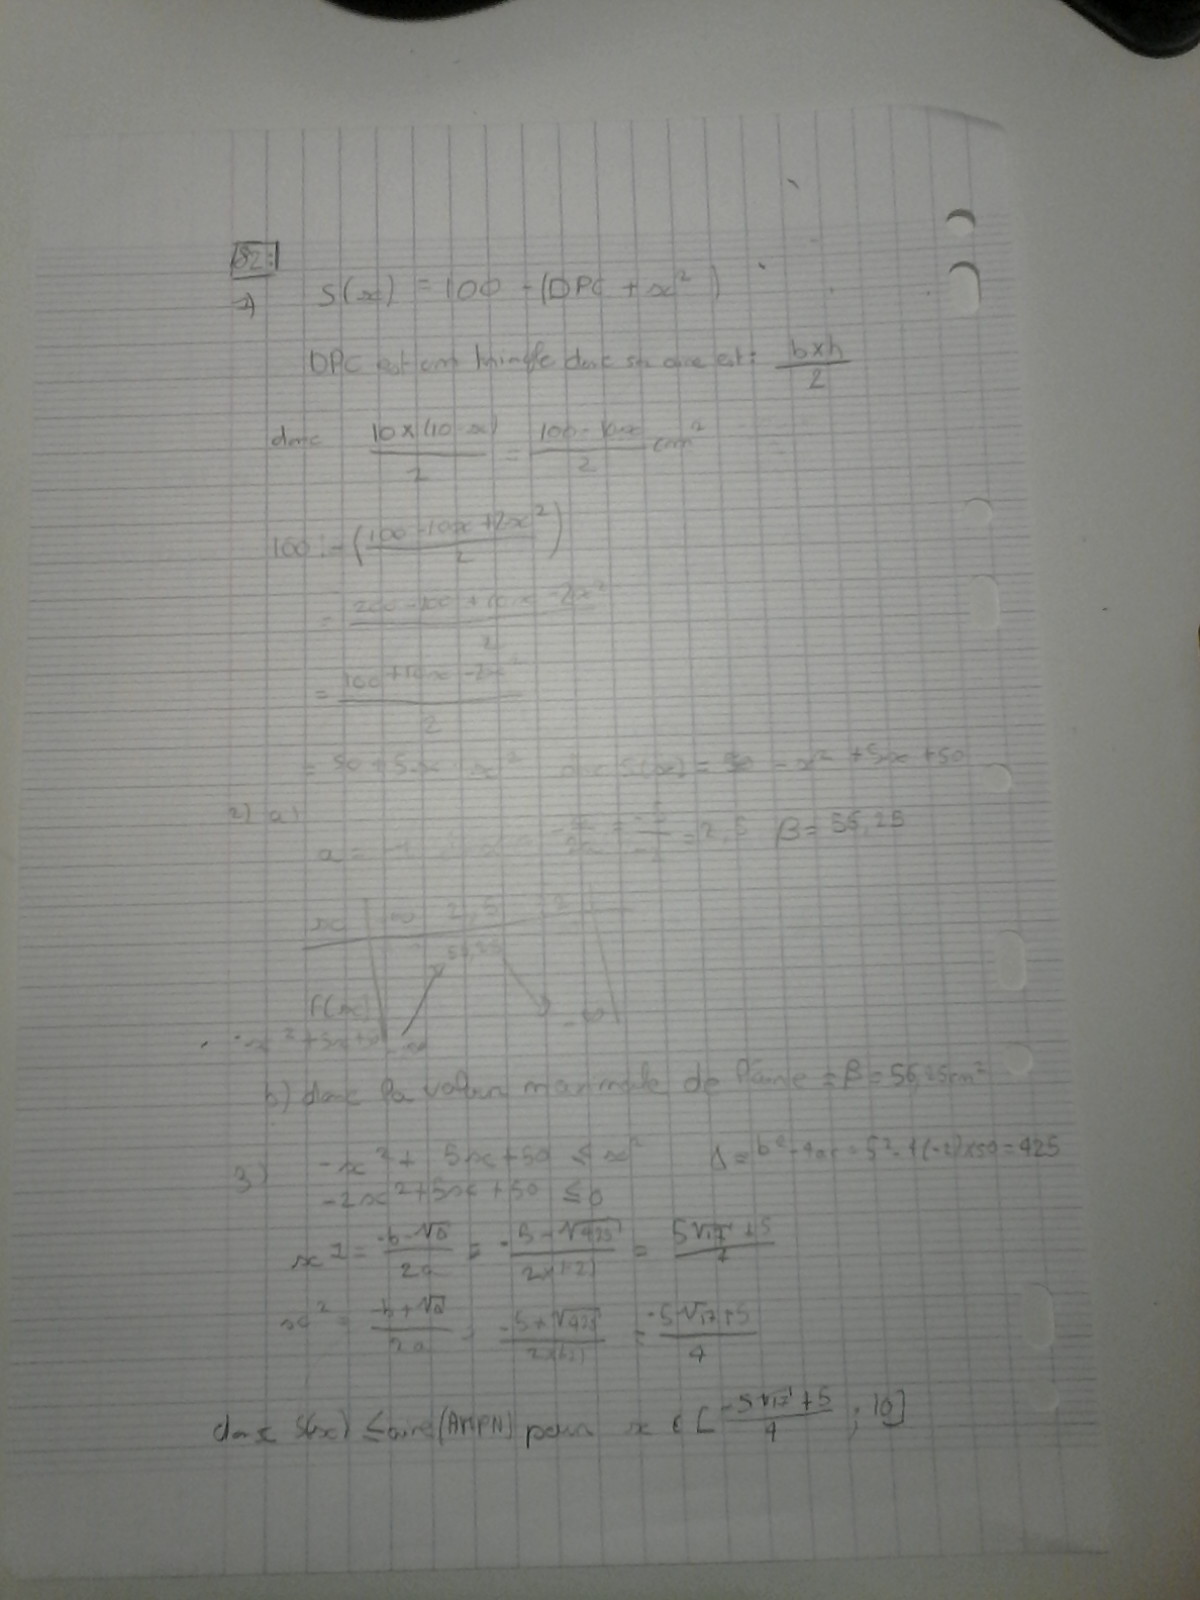 82:
1) S(x) = 100 - (DPC + x²)
DPC est un triangle donc son aire est : b×h/2
donc 10×(10-x)/2 = 100-10x/2 cm²
100 - (100-10x+2x²/2)
= 200-100+10x-2x²/2
= 100+10x-2x²/2
= 50+5x-x² donc S(x) = -x²+5x+50
2) a)
a = -1 = 2,5 β = 56,25
x -∞ 2,5
56,25
f(x)
-x²+5x+50 -∞ -∞
b) donc la valeur maximale de l'aire = β = 56,25cm²
3) -x²+5x+50 ≤ x² Δ = b²-4ac = 5²-4(-2)×50 = 425
-2x²+5x+50 ≤ 0
x1 = -b-√Δ/2a = -5-√425/2×(-2) = 5√17+5/4
x² = -b+√Δ/2a = -5+√425/2×(-2) = -5√17+5/4
donc S(x) ≤ aire(AMPN) pour x ∈ [-5√17+5/4 ; 10]